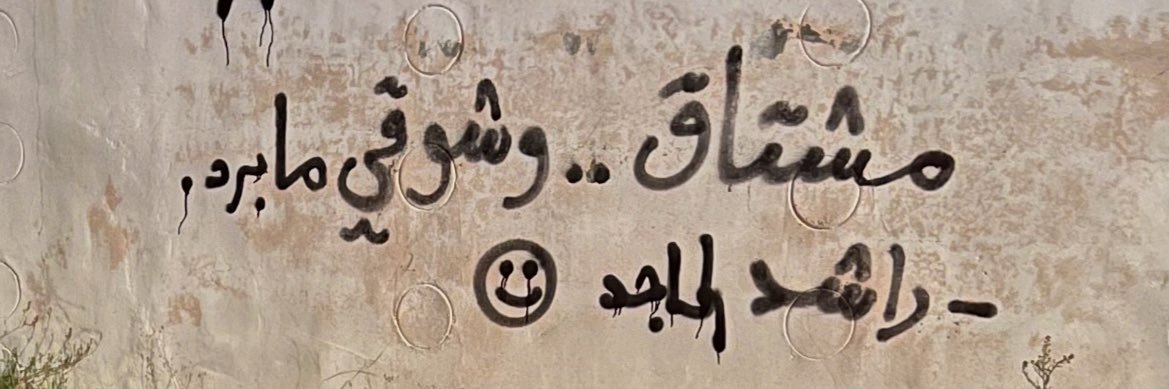 مشتاق .. وشوقي ما برد.
- راشد الماجد